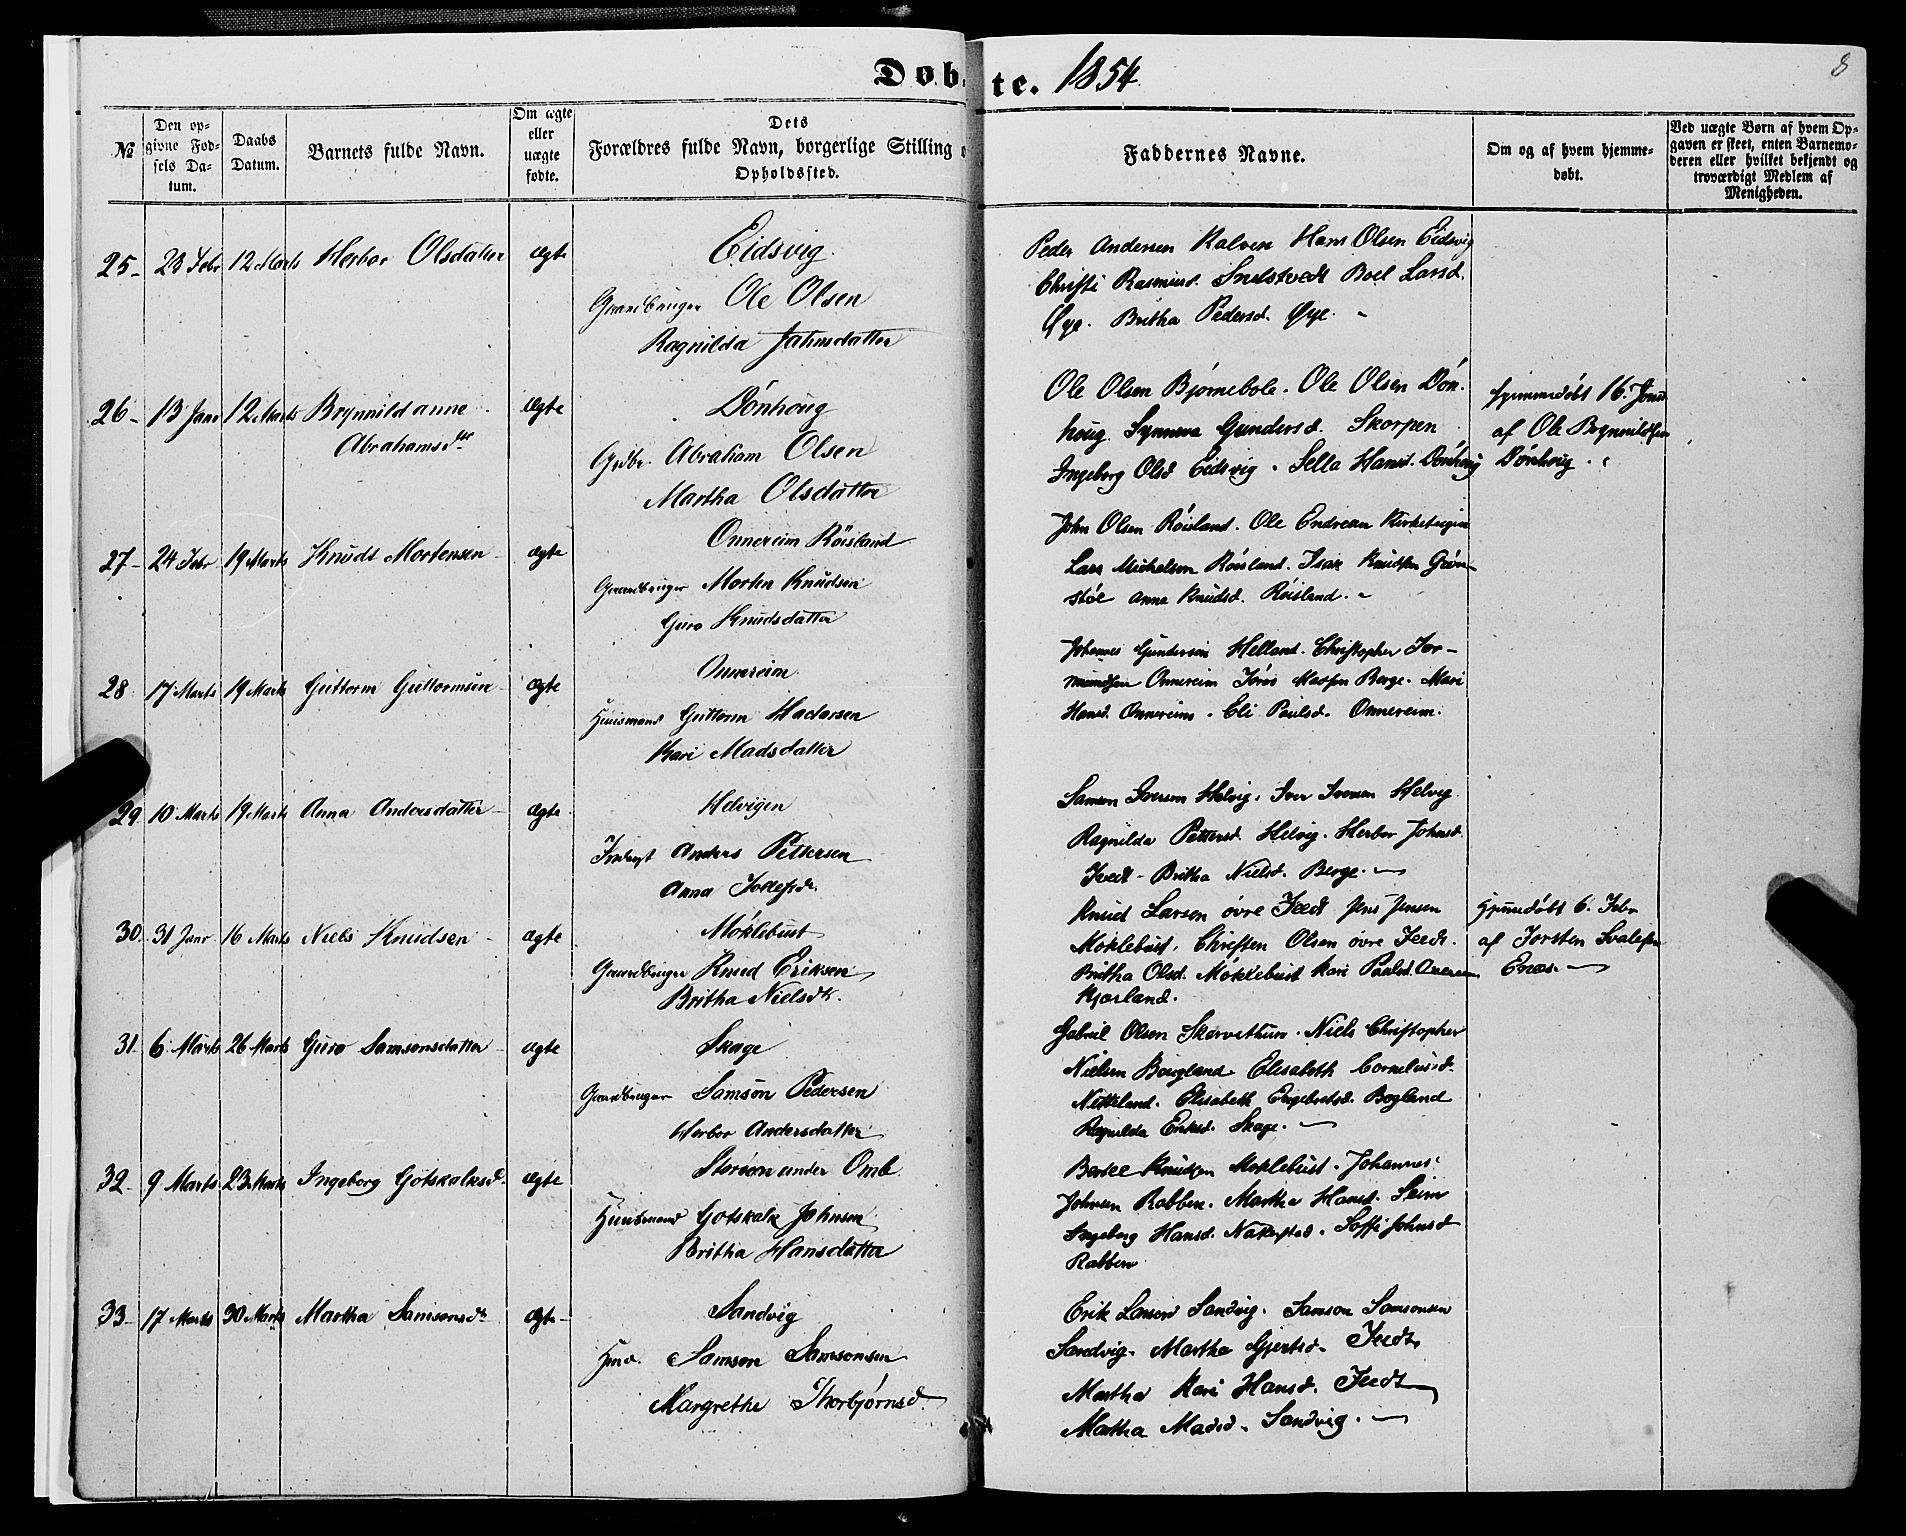 Døbte. 1854
8
№
Den opgivne Fødsels Datum.
Daabs Datum.
Barnets fulde Navn.
Om ægte eller uægte fødte.
Dets Forældres fulde Navn, borgerlige Stilling o
Opholdssted.
Faddernes Navne.
Om og af hvem hjemmedøbt.
Ved uægte Børn af hvem Opgaven er skeet, enten Barnemoderen eller hvilket bekjendt og troværdigt Medlem af Menigheden.
25 - 23 Febr 12 Marts Herbor Olsdatter ægte
Eidsvig.
Gaardbruger Ole Olsen
Ragnilda Johnsdatter
Peder Andersen Kalven Hans Olsen Eidsvig
Christi Rasmusd. Boel Larsd.
Øye. Britha Pedersd. Øye. -
26 - 13 Janr 12 Marts Brynnild anne ægte
Abrahamsdtr
Dónhoug
Grdbr. Abraham Olsen
Martha Olsdatter
Ole Olsen Bjørnebole. Ole Olsen Dón-
houg. Synneva Gundersd. Skorpen
Ingeborg Olsd Eidsvig. Sella Hansd. Dónhoug
hjemmedøbt 16. Janr
af Ole Brynnildsen
Dónhoug.
27 - 24 Febr 19 Marts Knudt Mortensen - ægte
Onnereim Róisland
Gaardbruger Morten Knudsen
Guro Knudsdatter
John Olsen Róisland. Ole Endresen
Lars Michelsen Róisland. Isak Knudsen Grón-
stól anna Knudsd. Róisland. -
28 17 Marts 19 Marts Guttorm Guttormsen - ægte
Onnereim
Huusmand Guttorm Hadorsen
Kari Madsdatter
Johannes Gundersen Helland. Christopher Tor-
mundsen Onnereim Berge. Mari
Hansd. Onnereim. Eli Paulsd. Onnereim.
29 10 Marts 19 Marts Anna Andersdatter - ægte
Helvigen
Inderst Anders Pettersen
Anna
Samson Iversen Helvig. Iver Iversen Helvig.
Ragnilda Pettersd. Helvig. Herbor Johnsd.
Tvedt - Britha Nielsd. Berge. -
30. 31 Janr 16 Marts Niels Knudsen - ægte
Móklebust
Gaardbruger Knud Eriksen
Britha Nielsdtr.
Knud Larsen óvre Tvedt Jens Jensen
Moklebust. Christen Olsen óvre Tvedt.
Britha Olsd. Móklebust Kari Paulsd.
Kjærland.
Hjemmedøbt 6. Febr
af Torsten
Enæs. -
31 6. Marts 26 Marts Guro Samsonsdatter - ægte
Skage
Gaardbruger Samson Pedersen
Herbor Andersdatter
Gabriel Olsen Skorvethun. Niels Christopher
Nielsen Bougland Elisabeth Corneliusd.
Netteland. Elisabeth Engebretsd. Bogland
Ragnilda Eriksd. Skage. -
32 - 9 Marts 23 Marts Ingeborg Gotskalksd. ægte
under Omb.
Huusmand Gotskalk Johnsen
Britha Hansdatter
Knudsen Moklebust. Johannes
Johnsen Rabben. Martha Hansd. Seim
Ingeborg Hansd. Nakersted. Soffi Johnsd
Rabben
33 - 17 Marts 30 Marts Martha Samsonsdr ægte -
Sandvig
Hmd. Samson Samsonsen
Margrethe Thorbjørnsd
Erik Larsen Sandvig. Samson Samsonsen
Sandvig. Martha Gjertsd. Tvedt
Martha Kari Hansd. Tvedt
Martha Madsd. Sandvig. -